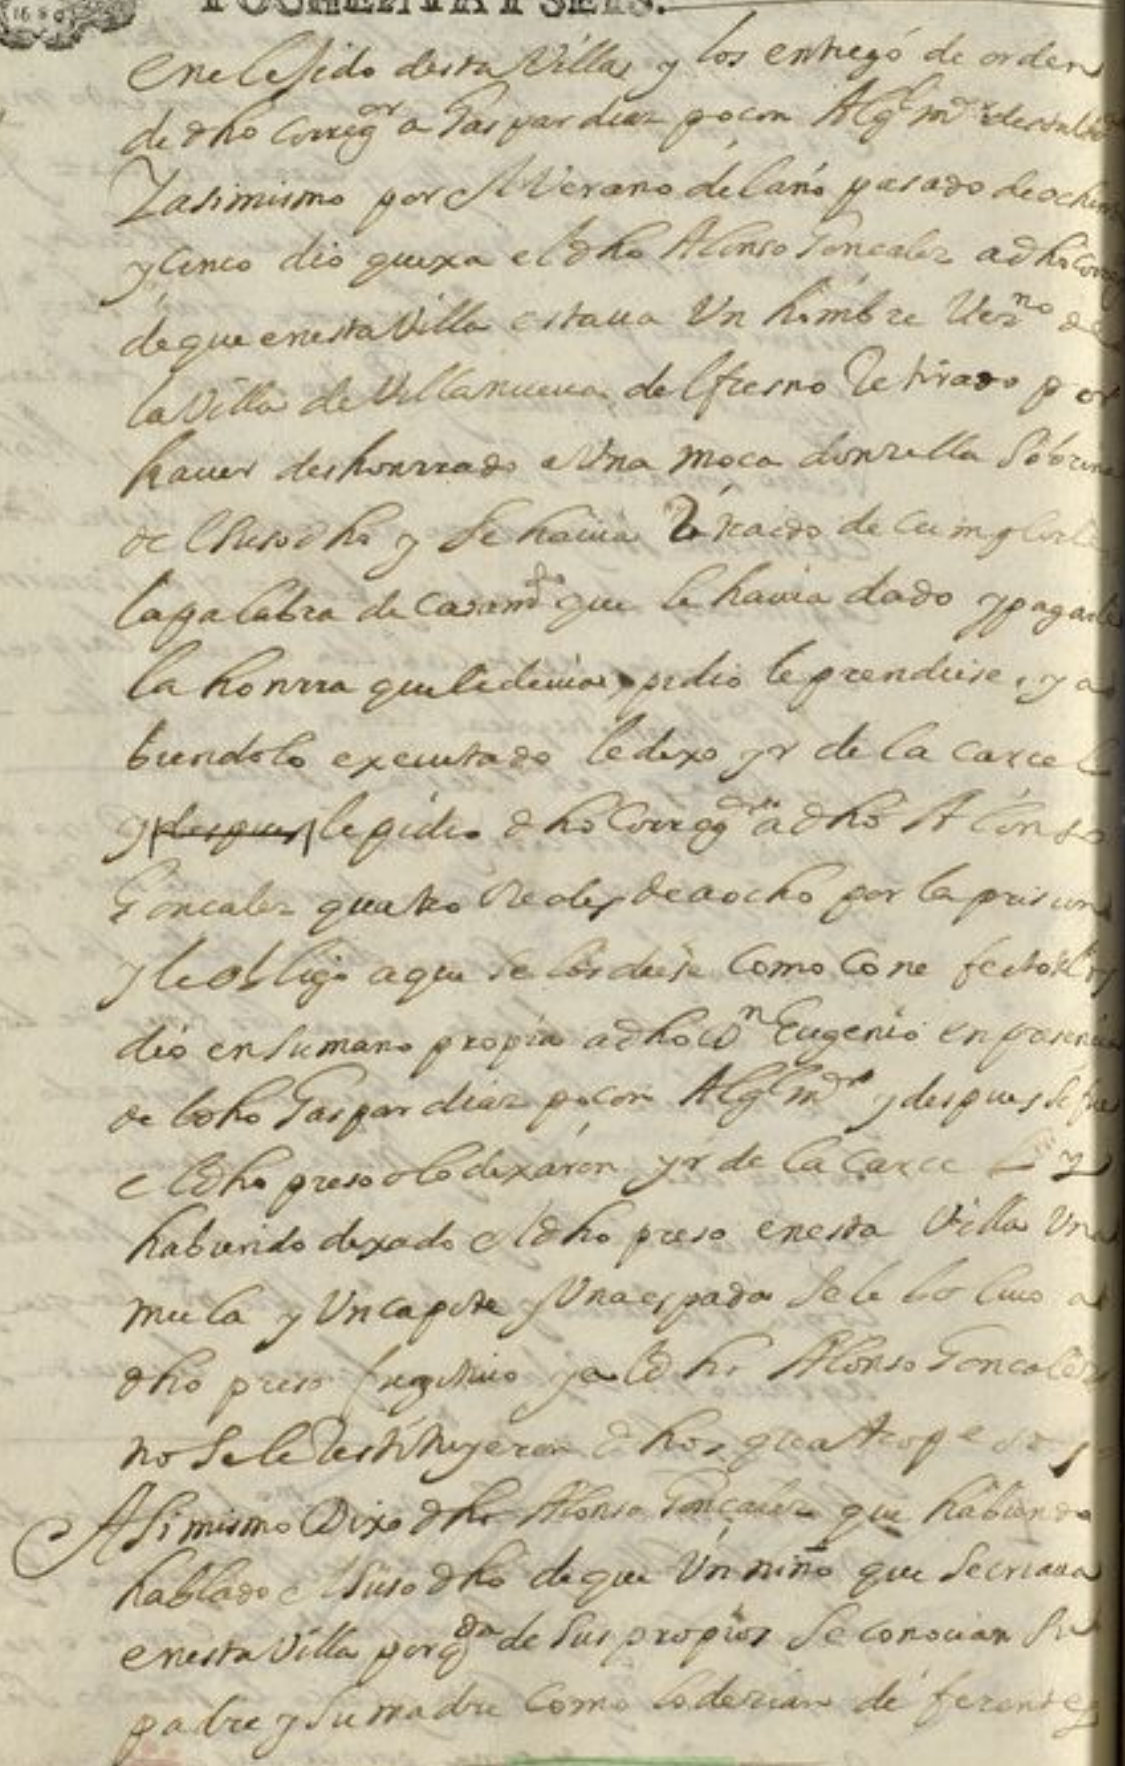 YOCHENTA Y SEIS.
en el exido desta Villa, y los entregó de orden
de dho Corregor a Gaspar diaz pocon Algl mor desta
Y asimismo por el Verano del año pasado de ochen
y cinco dio quexa el dho Alonso Goncalez a dho Corre
de que en esta Villa estaua Un hombre Vezno de
la Villa de Villanueua del fresno Retirado por
hauer deshonrrado a Una moca donzella Sobrina
del Susodho y Se hauia de Cumplirle
la palabra de Casamto que le hauia dado y pagarle
la honrra que le deuia pidio le prendiese, y a
biendolo executado le dexo yr de la carcel
y despues le pidio dho Corregor a dho Alonso
Goncalez quatro Reales de a ocho por la prision
y le obligo a que Se los diese Como Con efecto Se los
dio en Su mano propia a dho Dn Eugenio en presencia
del dho Gaspar diaz pocon Algl mor y despues Se fue
el dho preso o lo dexaron yr de la Carcel y
habiendo dexado el dho preso en esta Villa Una
mula y Un capote y Una espada Se le boluio al
dho preso fugitiuo y al dho Alonso Goncalez
no Se le Restituyeron dhos quatro pesos
Asimismo Dixo dho Alonso Goncalez que habiendo
hablado el Susodho de que Un niño que Se criaua
en esta Villa por qta de Sus propios Se conocian Su
padre y Su madre Como lo decian diferentes